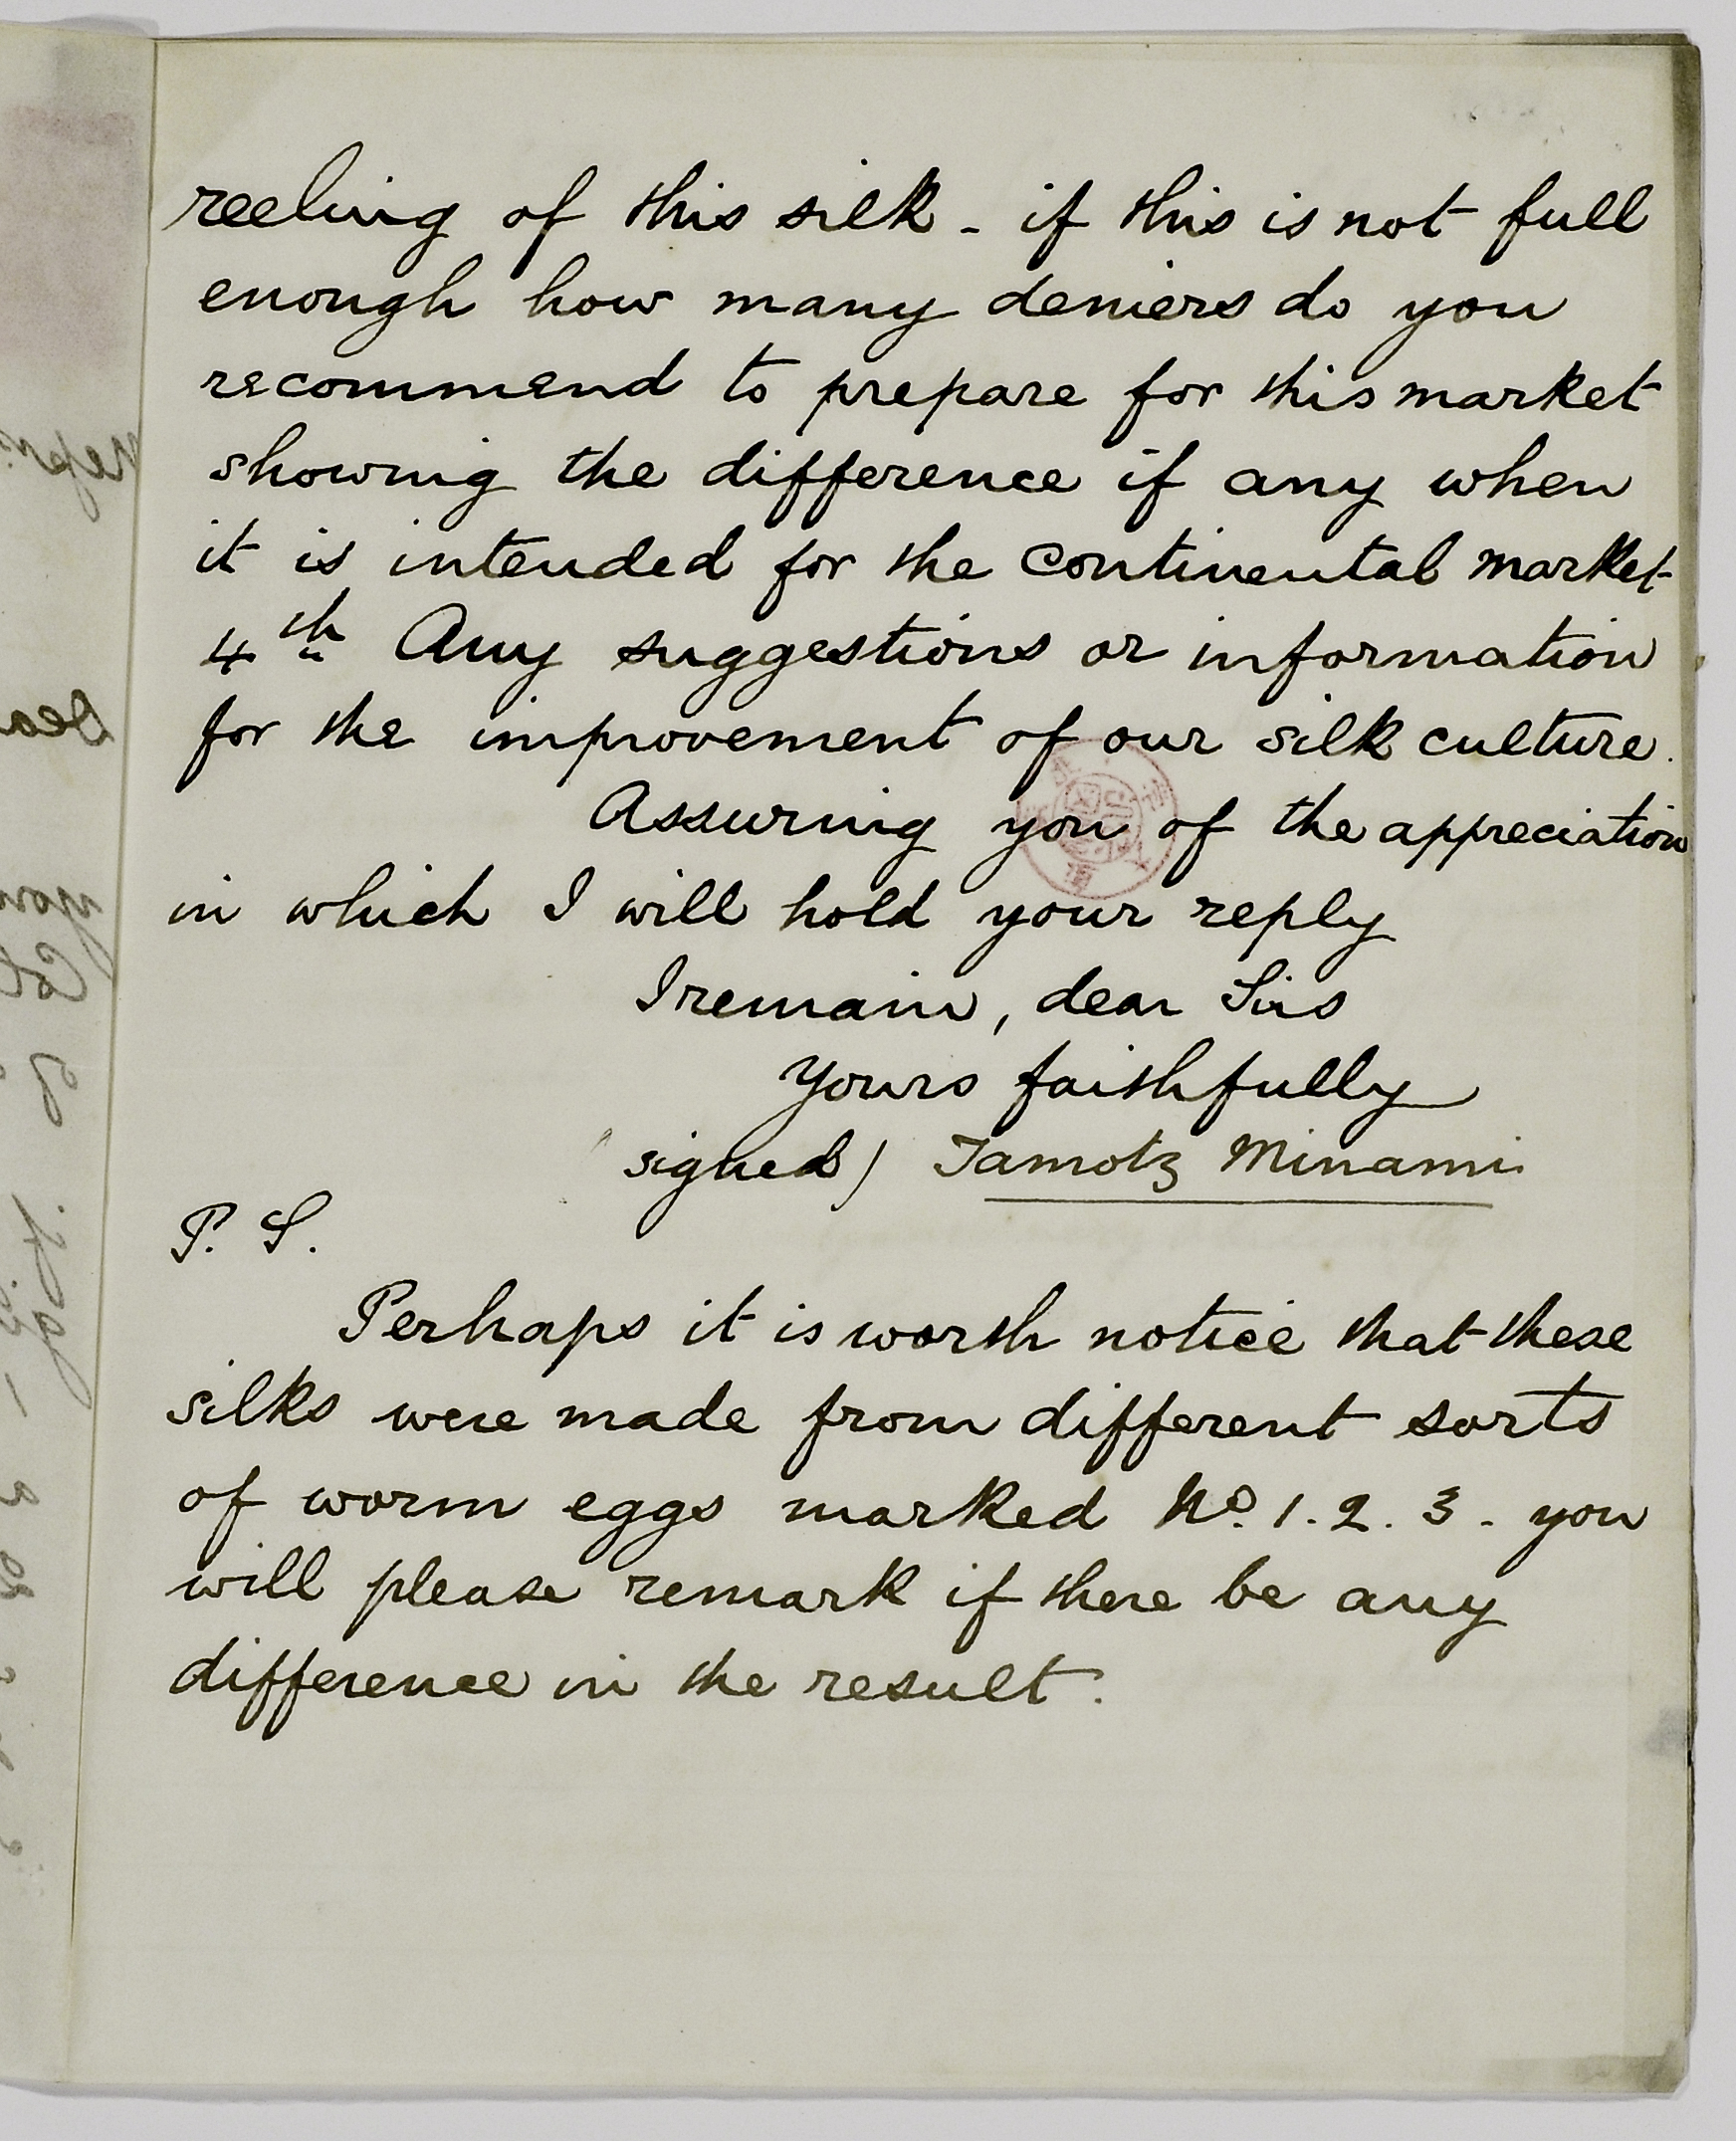 reeling of this silk - if this is not full
enough how many deniers do you
recommend to prepare for this market
showing the difference if any when
it is intended for the continental market
4th Any suggestions or information
for the improvement of our silk culture.
Assuring you of the appreciation
in which I will hold your reply
I remain, dear Sirs
Yours faithfully
(signed) Tamotz Minami
P. S.
Perhaps it is worth notice that these
silks were made from different sorts
of worm eggs marked No. 1. 2. 3. you
will please remark if there be any
difference in the result.